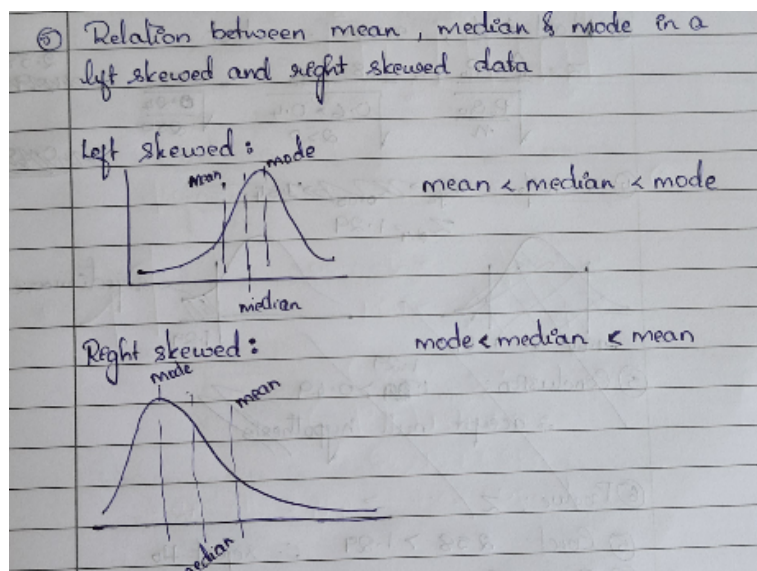 ⑤ Relation between mean, median & mode in a
left skewed and right skewed data
Left skewed:
mode
mean
mean < median < mode
median
Right skewed:
mode < median < mean
mode
mean
median